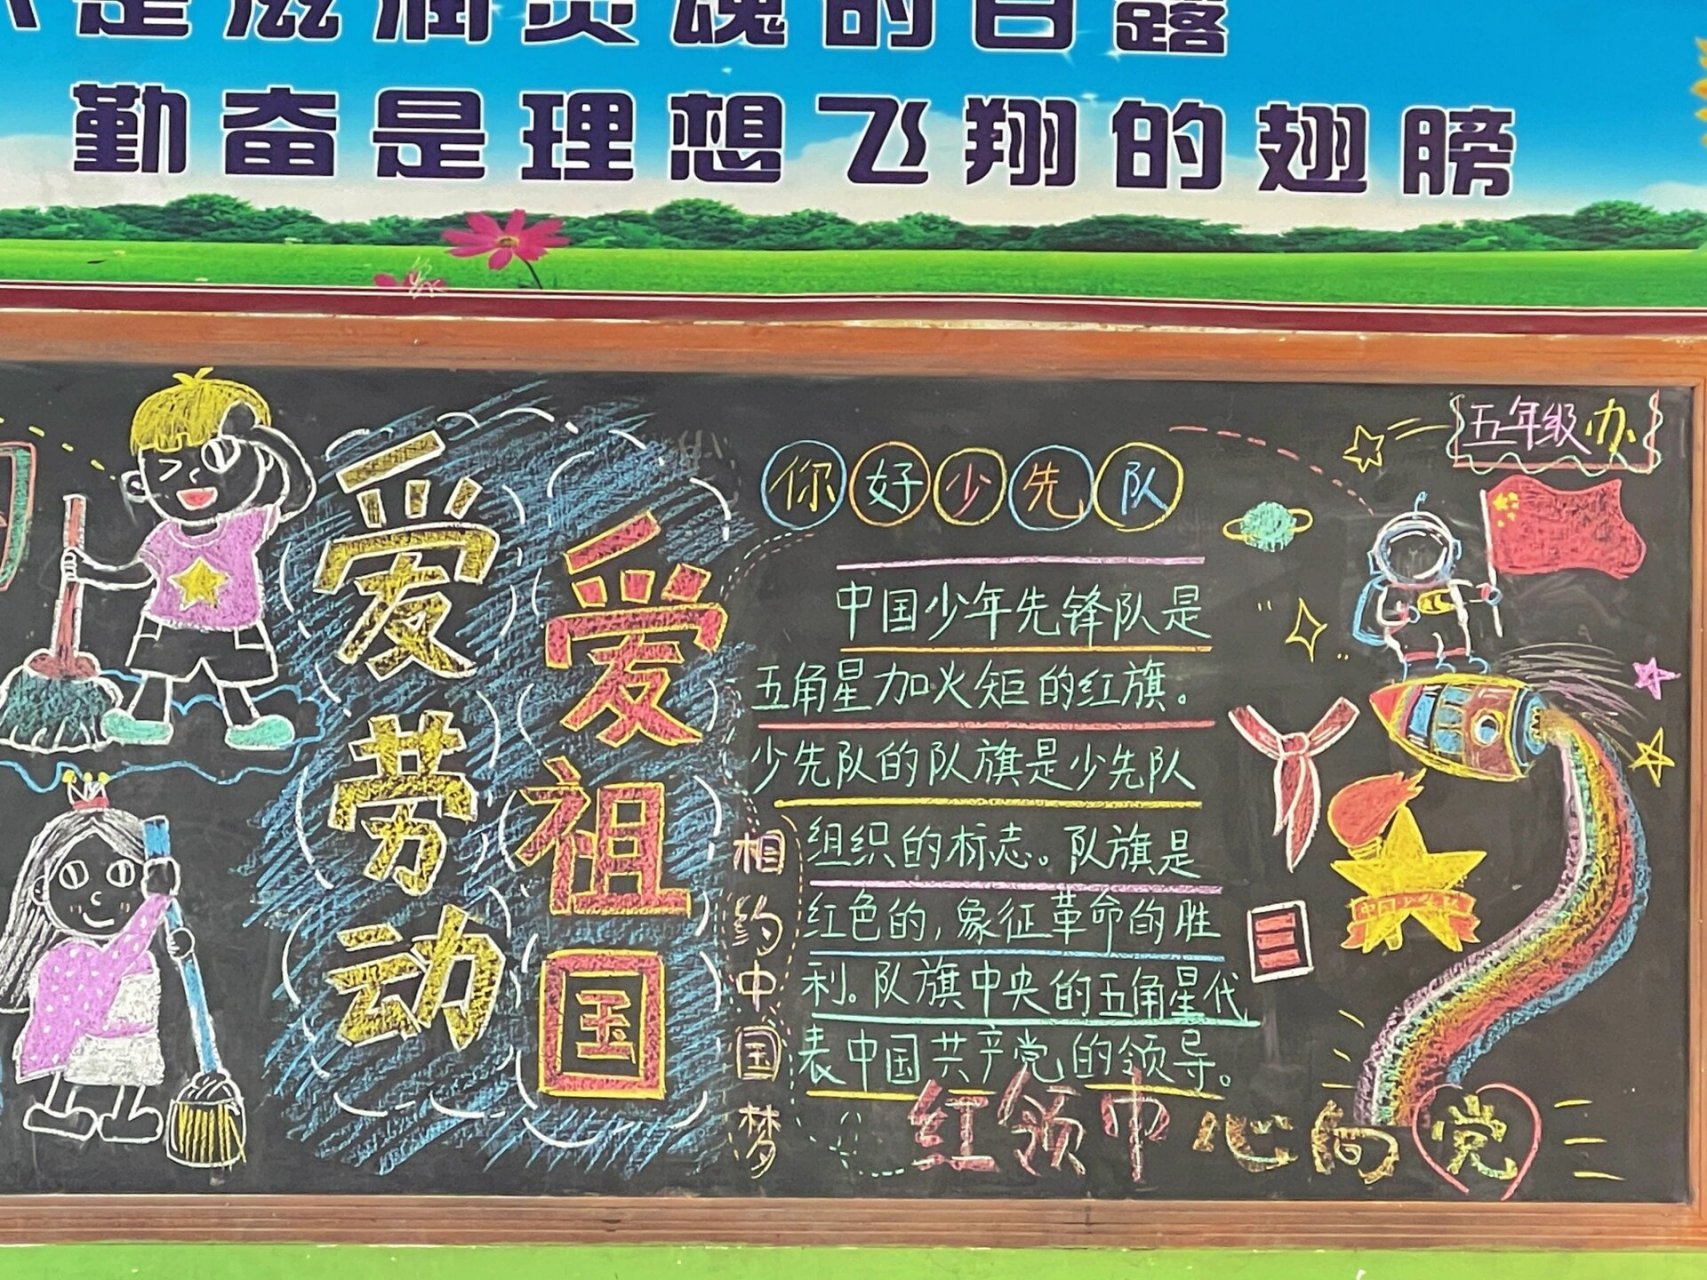 是滋润灵魂的甘露
勤奋是理想飞翔的翅膀
五年级办
爱劳动
爱祖国
你好少先队
中国少年先锋队是
五角星加火炬的红旗。
少先队的队旗是少先队
组织的标志。队旗是
红色的，象征革命的胜
利。队旗中央的五角星代
表中国共产党的领导。
相约中国梦
红领巾心向党